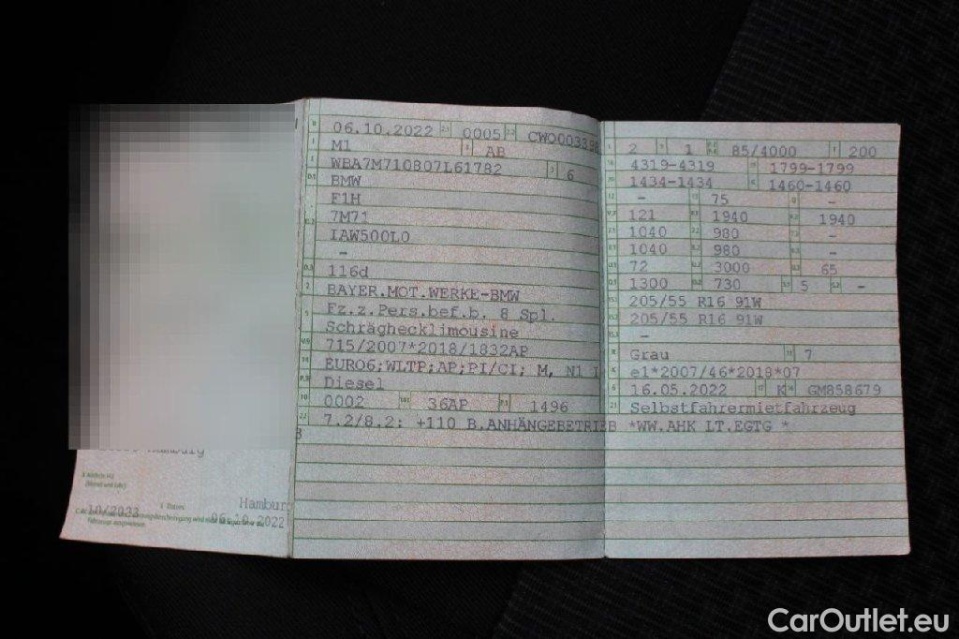 Hamburg
10/2023
Hambur
06.10.2022
06.10.2022 0005 CWO00339
M1 AB
WBA7M710807L61782 6
BMW
F1H
7M71
IAW500L0
-
116d
BAYER.MOT.WERKE-BMW
Fz.z.Pers.bef.b. 8 Spl.
Schräghecklimousine
715/2007*2018/1832AP
EURO6;WLTP;AP;PI/CI; M, N1 I
Diesel
0002 36AP 1496
7.2/8.2: +110 B.ANHÄNGEBETRIEB *WW.AHK LT.EGTG *
2 1 85/4000 200
4319-4319 1799-1799
1434-1434 1460-1460
- 75 -
121 1940 1940
1040 980 -
1040 980 -
72 3000 65
1300 730 5 -
205/55 R16 91W
205/55 R16 91W
-
Grau 7
e1*2007/46*2018*07
16.05.2022 K GM858679
Selbstfahrermietfahrzeug
CarOutlet.eu